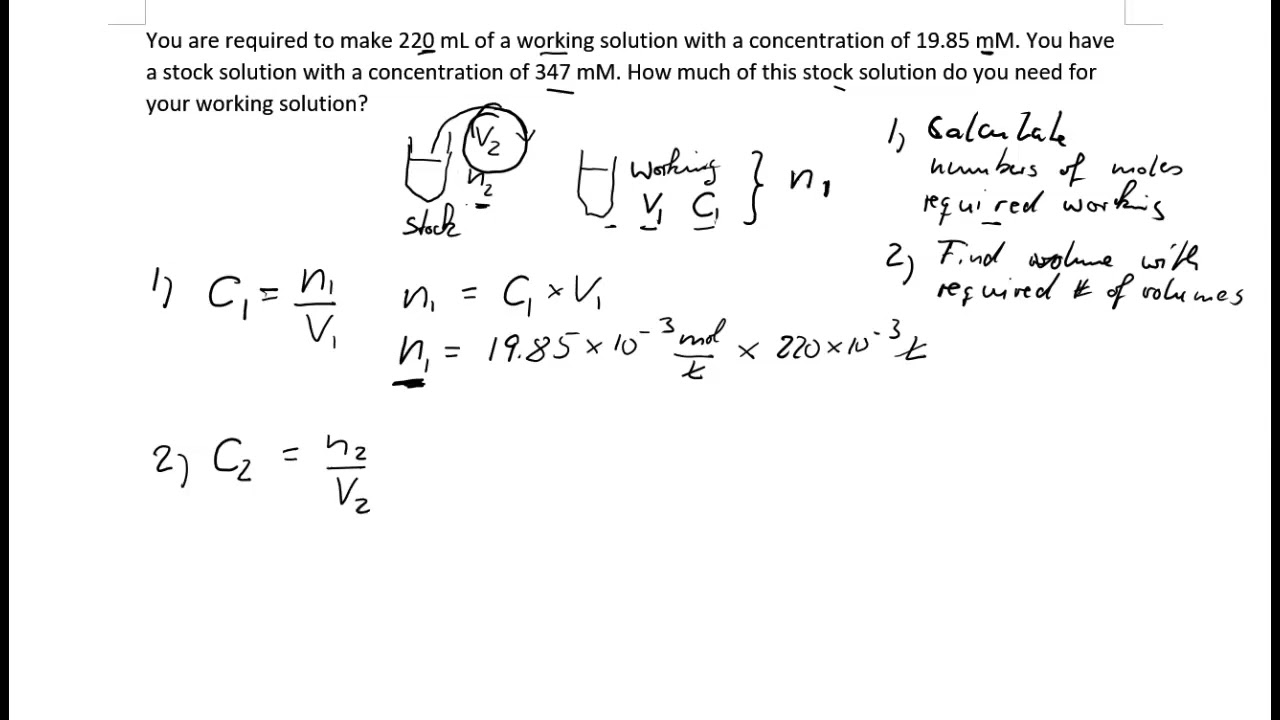 You are required to make 220 mL of a working solution with a concentration of 19.85 mM. You have
a stock solution with a concentration of 347 mM. How much of this stock solution do you need for
your working solution?
V₂
n₂
Stock
Working
V₁ C₁ } n₁
1) Calculate
numbers of moles
required working
2) Find volume with
required # of volumes
1) C₁ = n₁/V₁ n₁ = C₁ × V₁
n₁ = 19.85 × 10⁻³ mol/L × 220 × 10⁻³ L
2) C₂ = n₂/V₂